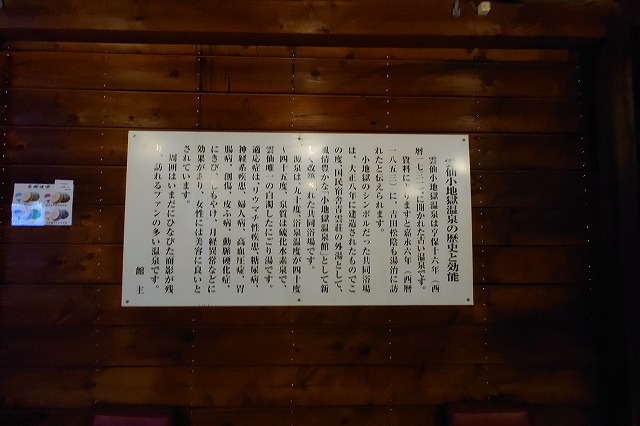 雲仙小地獄温泉の歴史と効能
雲仙小地獄温泉は享保十六年（西
暦一七三一）に開かれた古い温泉です。
資料によりますと嘉永六年（西暦
一八五三）には、吉田松陰も湯治に訪
れたと伝えられます。
小地獄のシンボルだった共同浴場
は、大正八年に建造されたものでこ
の度、国民宿舎青雲荘の外湯として、
風情豊かな「小地獄温泉館」として新
しく改築された共同浴場です。
源泉は九十度、浴泉温度が四十度
～四十五度、泉質は硫化水素泉で、
雲仙唯一の白濁したにごり湯です。
適応症は、リウマチ性疾患、糖尿病、
神経系疾患、婦人病、高血圧症、胃
腸病、創傷、皮ふ病、動脈硬化症、
にきび、しもやけ、月経異常などに
効果があり、女性には美容に良いと
されています。
周囲はいまだにひなびた面影が残
り、訪れるファンの多い温泉です。
館主